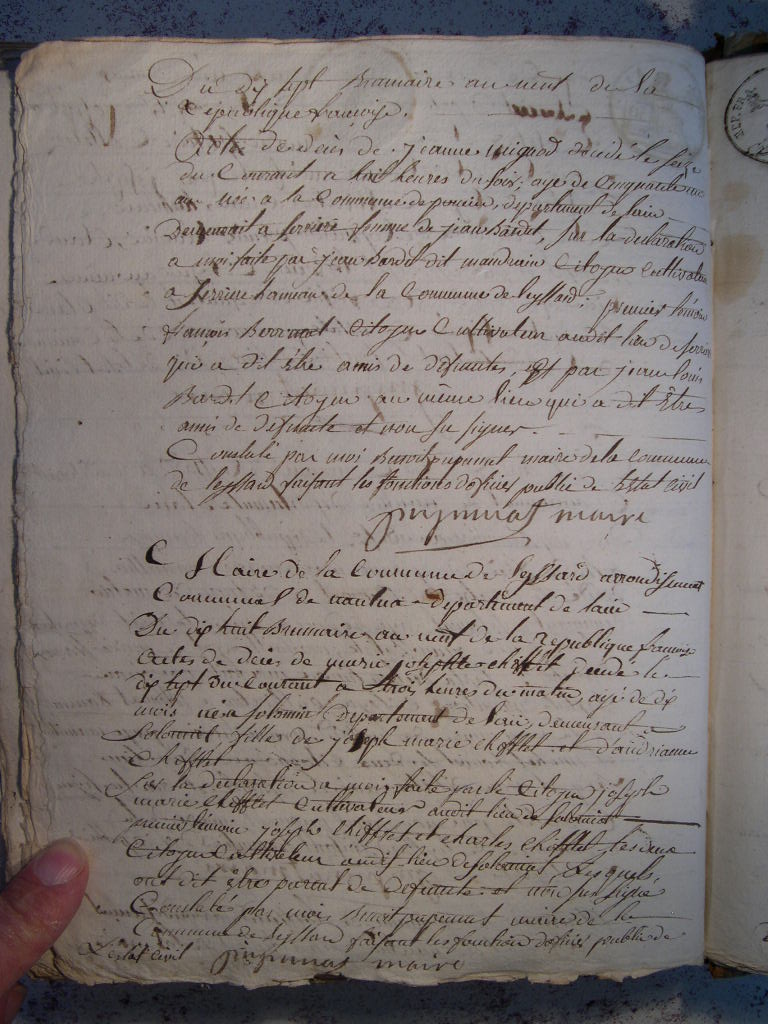 Du dix sept Brumaire an neuf de la
République françoise.
Acte de décès de jeanne décédé le seze
du Courant a huit heures du soir, agée de Cinquante
an née a la Commune de département de lain
demeurant a serriere femme de jean bardet, sur la déclaration
a moi faite par jean bardet dit mandrain Citoyen Cultivateur
a serriere hameau de la Commune de leyssard; premier témoin
francois Citoyen Cultivateur audit lieu de
qui a dit être amis de défuntes, et par jean louis
Bardet Citoyen au même lieu qui a dit être
amis de défunte et non su signer
Constaté par moi Benoit pupunat maire de la Commune
de leyssard faisant les fonctions dofisier public de Estat Civil
pupunat maire
Maire de la Commune de leyssard arrondisement
Communal de nantua departement de lain
Du dix huit Brumaire an neuf de la republique francoise
actes de décès de marie josephte chifflet décédé le
dix sept du Courant a trois heures du matin, agé de dix
mois née a solomia Departement de lain, demeurant a
solomiat fille de joseph marie chifflet et dandrianne
Chifflet
sur la declaration a moi faite par le Citoyen joseph
marie Chifflet Cultivateur audit lieu de solomiat
premier temoin joseph Chifflet et charles Chifflet
Citoyen Cultivateur audit lieu de solomiat, Lesquels
ont dit être parent de defunte et non su signé
Constaté par moi Benoit pupunat maire de la
Commune de leyssard faisant les fonction dofisier public de
Lestat Civil pupunat maire
REP. FRA